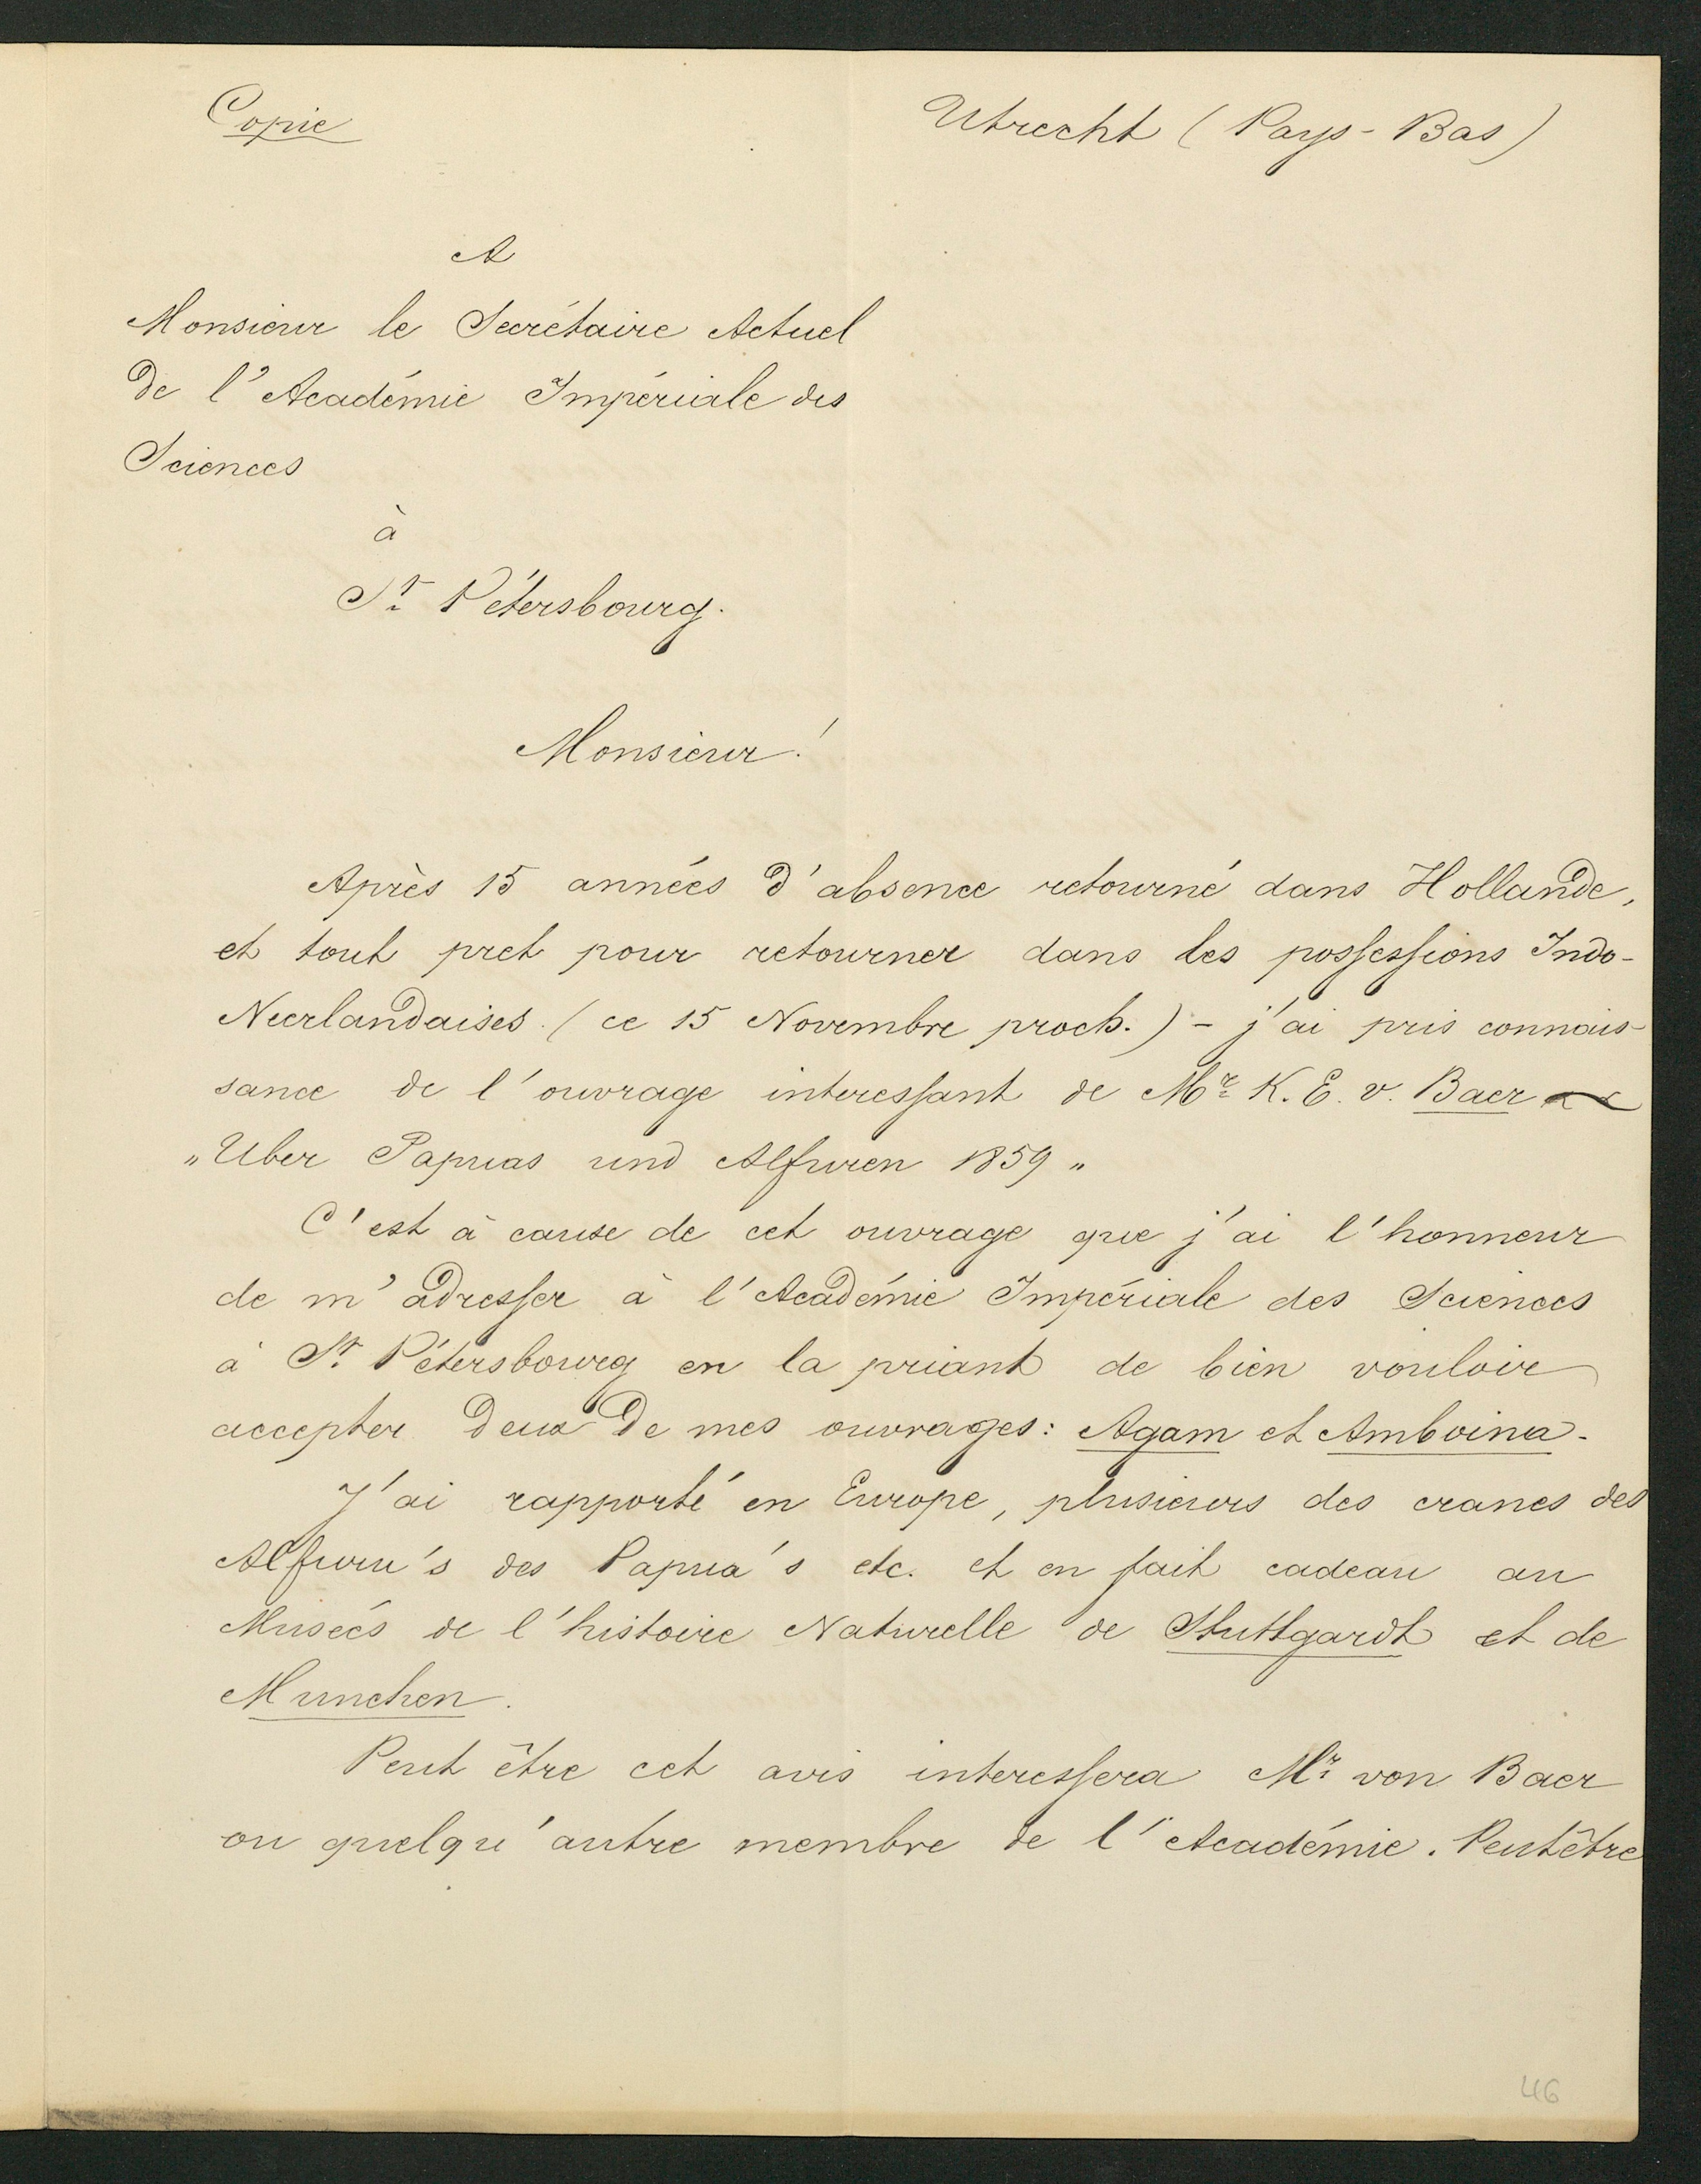 Copie
Utrecht (Pays-Bas)
A
Monsieur le Secrétaire Actuel
de l'Académie Impériale des
Sciences
à
St. Pétersbourg.
Monsieur!
Après 15 années d'absence retourné dans Hollande,
et tout pret pour retourner dans les possessions Indo-
Neerlandaises. (ce 15 Novembre proch.) - j'ai pris connais-
sance de l'ouvrage interessant de Mr. K. E. v. Baer
„Uber Papuas und Alfuren 1859„
C'est à cause de cet ouvrage que j'ai l'honneur
de m'adresser à l'Académie Impériale des Sciences
à St. Pétersbourg en la priant de bien vouloir
accepter deux de mes ouvrages: Agam et Amboina.
J'ai rapporté en Europe, plusieurs des cranes des
Alfuru's des Papua's etc. et en fait cadeau au
Museés de l'histoire Naturelle de Stuttgardt et de
Munchen.
Peut être cet avis interessera Mr. von Baer
ou quelqu'autre membre de l'Académie. Peutêtre
46